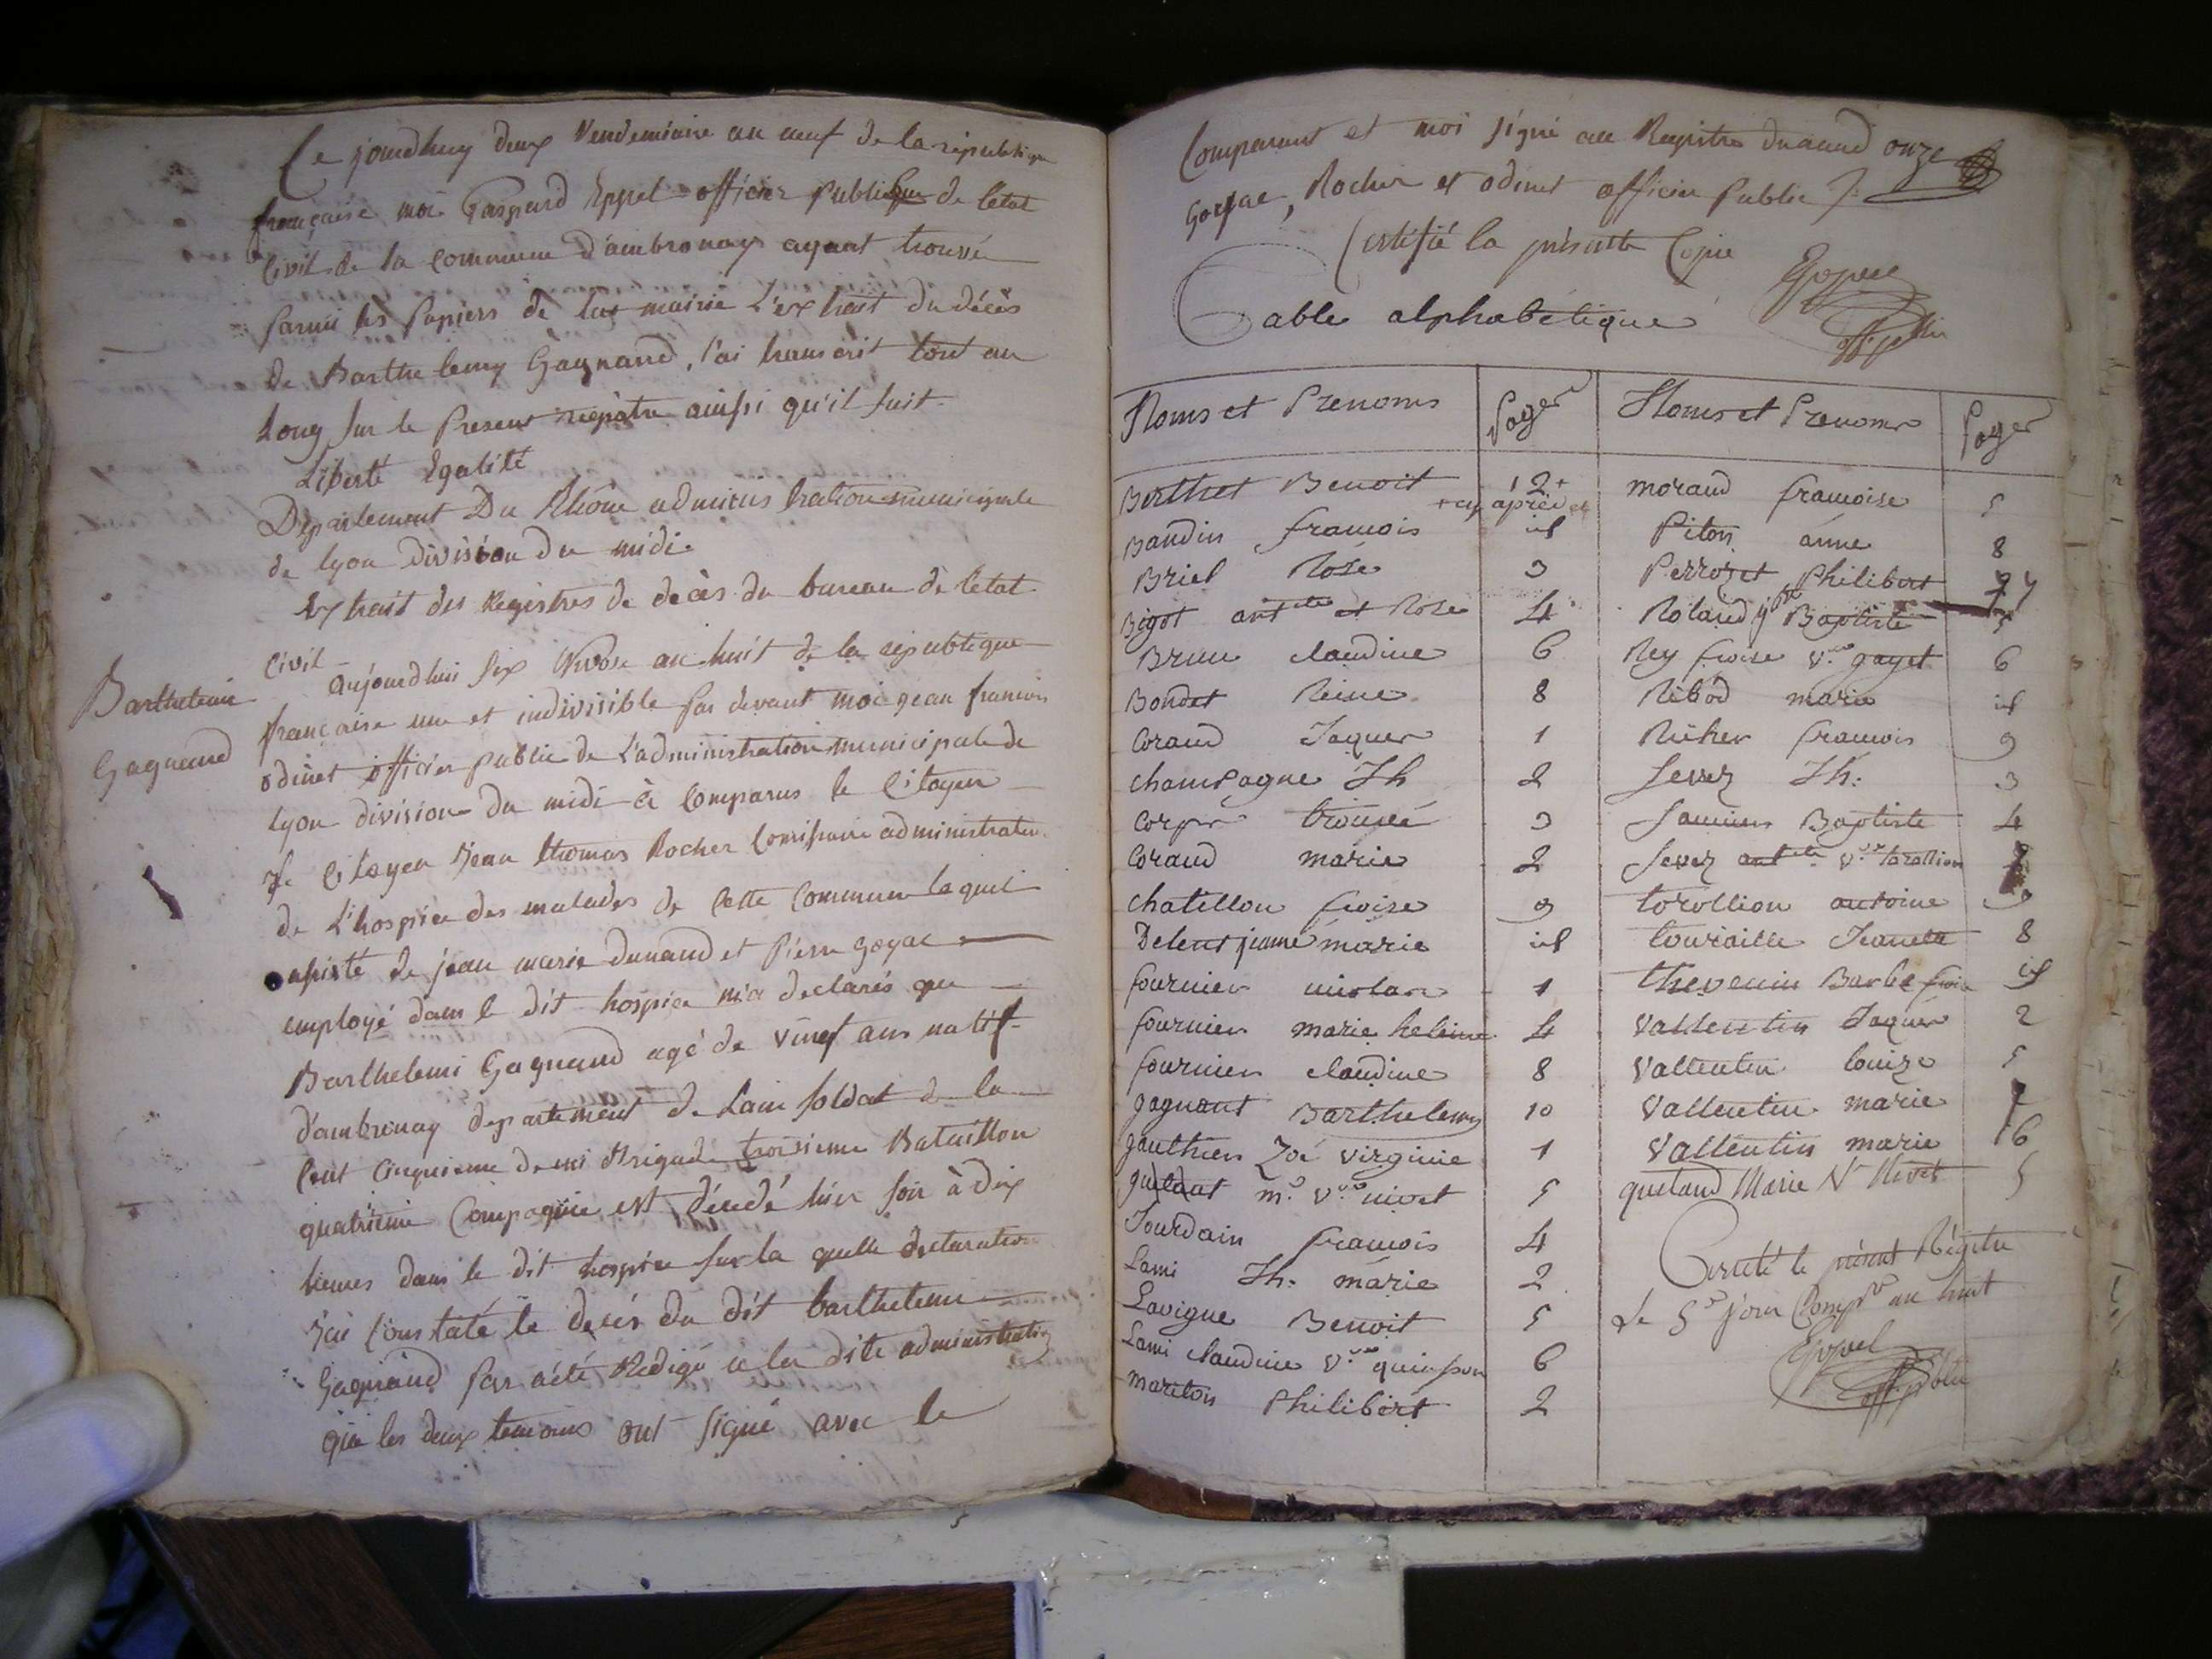 Ce jourdhuy deux Vendemiaire an neuf de la republique
française moi Gaspard Eppel officier publique de l'état
Civil de la commune d'ambronay ayant trouvé
parmi les papiers de la mairie L'extrait du décès
de Barthelemy Gagnand, l'ai transcrit tout au
Long sur le Present registre ainssi qu'il suit
Liberté Egalité
Département Du Rhône administration municipale
de Lyon Division du midi
Extrait des Registres de decès du bureau de l'état
Civil
Barthelemi
Gagneand
aujourdhui six Nivose an huit de la republique
française une et indivisible par devant moi jean francois
odinet officier public de L'administration municipale de
Lyon division du midi à Comparus le Citoyen
Le Citoyen Jean thomas Rocher administrateur
de L'hospice des malades de Cette Commune lequel
assisté de jean marie dunand et Pierre goyac
employé dans le dit hospice m'a declarés que
Barthelemi Gagnand agé de vingt ans natif
d'ambronay departement de Lain soldat de la
Cent Cinquieme demi Brigade troisieme Bataillon
quatrieme Compagnie est décédé hier soir à dix
heures dans le dit hospice sur la quelle declaration
J'ai Constaté le decés du dit barthelemi
Gagnand par acte Redigé a la dite administration
que les deux temoins ont signé avec le
Comparant et moi signé au Registre dunand onze
goyac, Rocher et odinet officier Public
Certifié la présente Copie
Eppel
off. public
Table alphabétique
Noms et Prenoms Pages Noms et Prenoms Pages
Berthet Benoit 2+ morand francoise 5
+ cy aprés
Baudin francois id Piton anne 8
Briel Rose 3 Perrozet Philibert 7
Bigot antte et Rose 4 Roland Jn Bte Baptiste 5
Brun claudine 6 Rey froise ve gayet 6
Bondet Reine 8 Ribod marie id
Coraud Jaques 1 Richer francois 9
champagne Jh 2 Sevez Jh: 3
Corps trouvé 3 Baptiste 4
Coraud marie 2 Sevez antte ve tarollion
chatillon froise 9 torollion antoine 9
Delent jeanne marie id touraille Jeanette 8
fournier nicolas 1 thevenin Barbe froise id
fournier marie heleine 4 vallentin Jaques 2
fournier claudine 8 vallentin louize 5
gagnant Barthelemy 10 vallentin marie 7
gauthier Zoé virginie 1 vallentin marie 6
guilant me ve nivet 5 guetand Marie Ve Nivet 5
Jourdain francois 4
Lami Jh: marie 2
Lavigne Benoit 5
Lami claudine ve quinson 6
mariton Philibert 2
Arreté le présent Régitre
Le 5e jour Compre an huit
Eppel
off. public